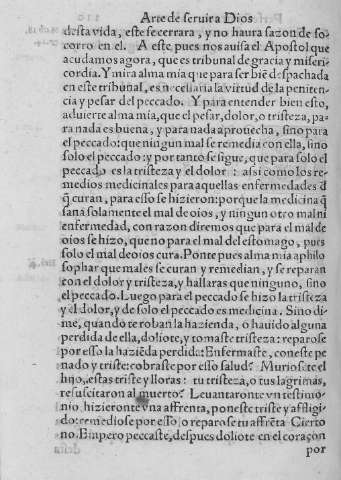 Arte de seruira Dios
desta vida, este se cerrara, y no haura sazon de so-
corro en el. A este pues nos auisa el Apostol que
acudamos agora, que es tribunal de gracia y miseri-
cordia. Y mira alma mia que para ser biẽ despachada
en este tribunal, es necessaria la virtud de la peniten-
cia y pesar del peccado. Y para entender bien esto,
aduierte alma mia, que el pesar, dolor, o tristeza, pa-
ra nada es buena, y para nada aprouecha, sino para
el peccado: que ningun mal se remedia con ella, sino
solo el peccado: y por tanto se sigue, que para solo el
peccado es la tristeza y el dolor: assi como los re-
medios medicinales para aquellas enfermedades đ
q̃ curan, para esso se hizieron: porque la medicina q̃
sana solamente el mal de ojos, y ningun otro mal ni
enfermedad, con razon diremos que para el mal de
ojos se hizo, que no para el mal del estomago, pues
solo el mal de ojos cura. Ponte pues alma mia a philo
sophar que males se curan y remedian, y se reparan
con el dolor y tristeza, y hallaras que ninguno, sino
el peccado. Luego para el peccado se hizo la tristeza
y el dolor, y de solo el peccado es medicina. Sino di-
me, quando te roban la hazienda, o hauido alguna
perdida de ella, doliote, y tomaste tristeza: reparose
por esso la haziẽda perdida? Enfermaste, con este pe
nado y triste: cobraste por esso salud? Muriose te el
hijo, estas triste y lloras: tu tristeza, o tus lagrimas,
resuscitaron al muerto? Leuantaronte vn testimo-
nio, hizieronte vna affrenta, poneste triste y affligi-
do: remediose por esso o reparose tu affrẽta? Cierto
no. Empero peccaste, despues doliote en el coraçon
por